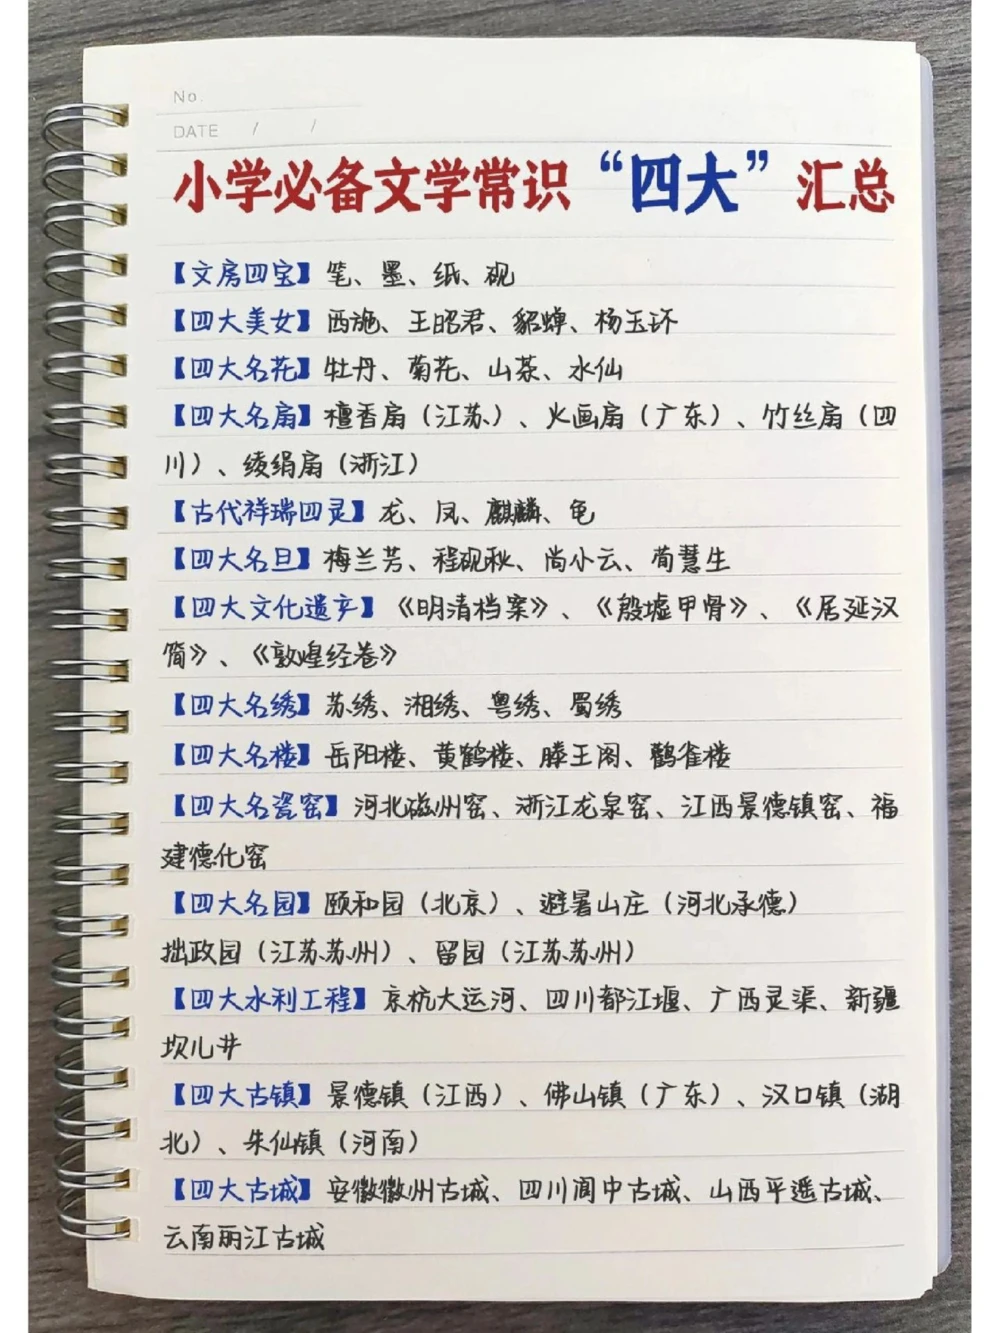 No.
DATE / /
小学必备文学常识“四大”汇总
【文房四宝】笔、墨、纸、砚
【四大美女】西施、王昭君、貂蝉、杨玉环
【四大名花】牡丹、菊花、山茶、水仙
【四大名扇】檀香扇（江苏）、火画扇（广东）、竹丝扇（四
川）、绫绢扇（浙江）
【古代祥瑞四灵】龙、凤、麒麟、龟
【四大名旦】梅兰芳、程砚秋、尚小云、荀慧生
【四大文化遗产】《明清档案》、《殷墟甲骨》、《居延汉
简》、《敦煌经卷》
【四大名绣】苏绣、湘绣、粤绣、蜀绣
【四大名楼】岳阳楼、黄鹤楼、滕王阁、鹳雀楼
【四大名瓷窑】河北磁州窑、浙江龙泉窑、江西景德镇窑、福
建德化窑
【四大名园】颐和园（北京）、避暑山庄（河北承德）
拙政园（江苏苏州）、留园（江苏苏州）
【四大水利工程】京杭大运河、四川都江堰、广西灵渠、新疆
坎儿井
【四大古镇】景德镇（江西）、佛山镇（广东）、汉口镇（湖
北）、朱仙镇（河南）
【四大古城】安徽徽州古城、四川阆中古城、山西平遥古城、
云南丽江古城